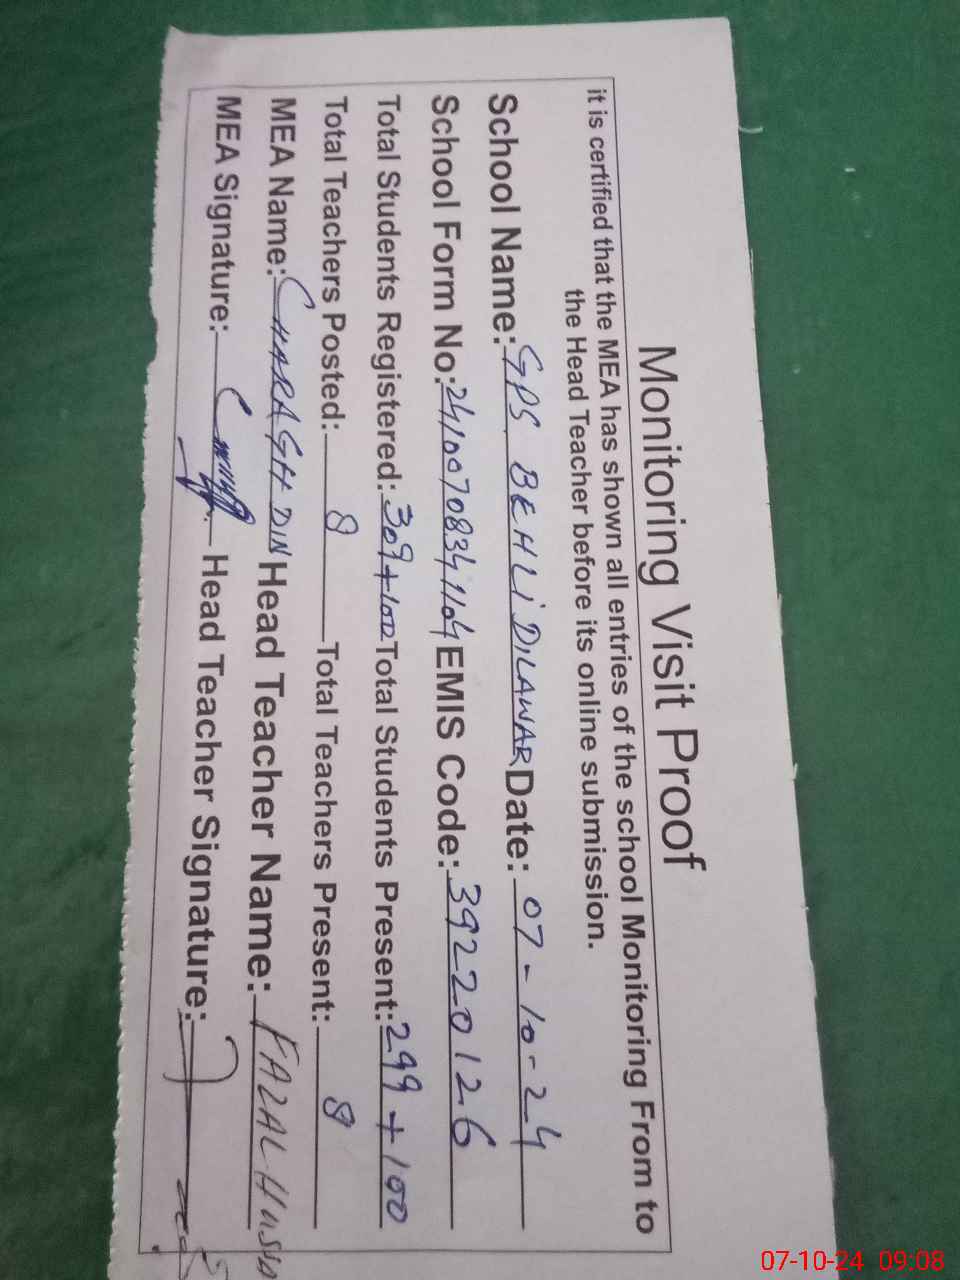 Monitoring Visit Proof
it is certified that the MEA has shown all entries of the school Monitoring From to
the Head Teacher before its online submission.
School Name: GPS BEHLI DILAWAR Date: 07-10-24
School Form No: 24100708341104 EMIS Code: 39220126
Total Students Registered: 309+100 Total Students Present: 299+100
Total Teachers Posted: 8 Total Teachers Present: 8
MEA Name: CHARAGH DIN Head Teacher Name: FAZAL
MEA Signature: Head Teacher Signature:
07-10-24 09:08